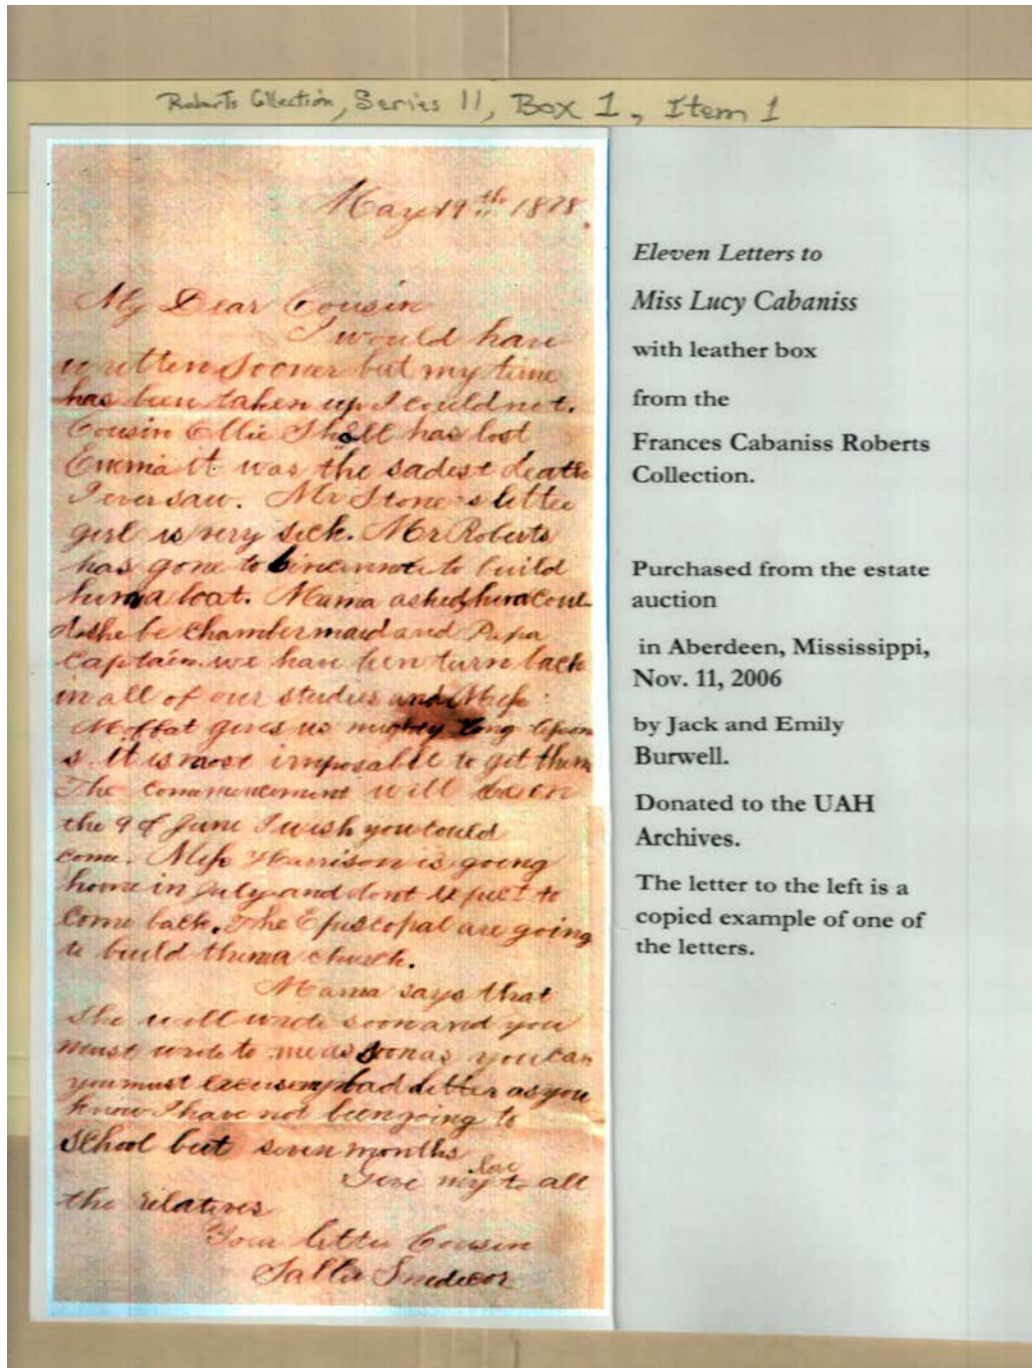 Roberts Collection, Series 11, Box 1, Item 1
May 19th 1878.
My Dear Cousin
I would have
written sooner but my time
has been taken up I could not.
Cousin Ellie has lost
Emma it was the sadest death
I ever saw. Mr Stone's little
girl is very sick. Mr Roberts
has gone to to build
him a boat. Mama asked him coul-
d she be Chambermaid and Papa
Captain. we have ben turn back
in all of our studies and Miss
Moffat gives us mighty long lesson
s. it is most imposable to get them
The commencement will be on
the 9 of June I wish you could
come. Miss Harrison is going
home in July and dont expect to
come back. The Episcopal are going
to build them a church.
Mama says that
she will write soon and you
must write to me as soon as you can
you must excuse my bad letter as you
know I have not been going to
school but seven months
Give my love to all
the relatives
Your little Cousin
Sallie Smedecor
Eleven Letters to
Miss Lucy Cabaniss
with leather box
from the
Frances Cabaniss Roberts
Collection.
Purchased from the estate
auction
in Aberdeen, Mississippi,
Nov. 11, 2006
by Jack and Emily
Burwell.
Donated to the UAH
Archives.
The letter to the left is a
copied example of one of
the letters.